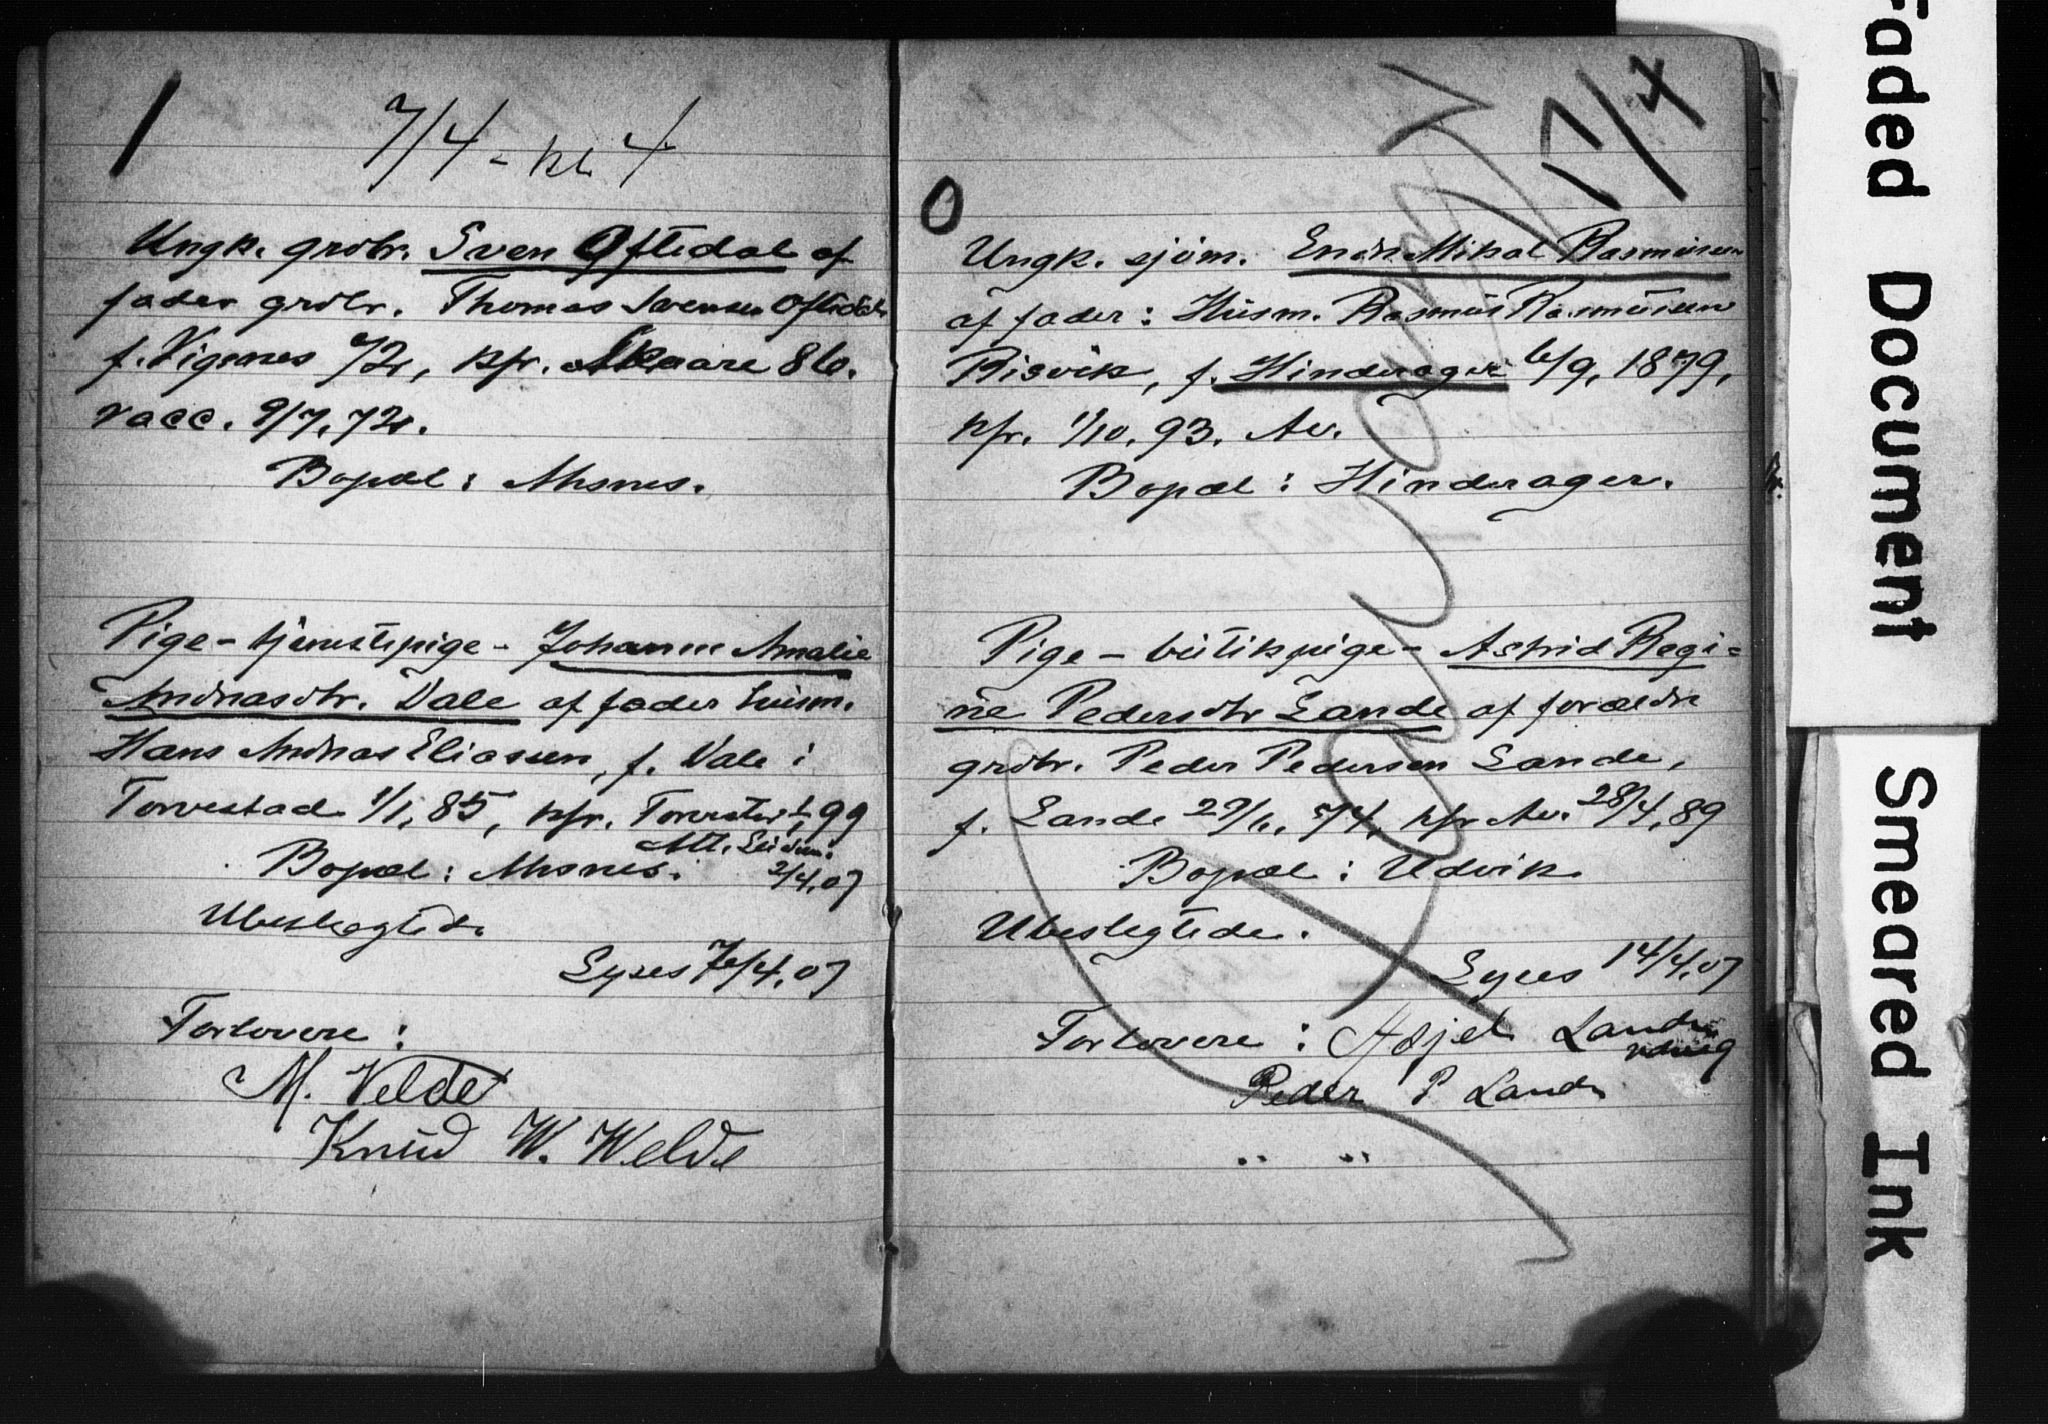 1
7/4 - kl. 4
Ungk. grdbr. Sven Oftedal af
fader grdbr. Thomas Svensen Oftedal
f. Vignes 72, kfr. Skaare 86.
vacc. 9/7, 72.
Bopæl: Aksnes.
Pige - tjenestepige - Johanne Amalie
Andreasdtr. Vale af fader husm.
Hans Andreas Eliassen, f. Vale i
Torvestad 1/1, 85, kfr. Torvestad 99
Att.
Bopæl: Aksnes. 2/4, 07
Ubeslegtede.
Lyses 7/4, 07
Forlovere:
M. Velde
Knud W. Welde
0
17/4
Ungk. sjøm. Endre Mikal Rasmussen
af fader: Husm. Rasmus Rasmussen
Risvik, f. Hinderager 6/9, 1879,
kfr. 1/10, 93. Av.
Bopæl: Hinderager.
Pige - butikpige - Astrid Regi=
ne Pedersdtr Lande af forældre
grdbr. Peder Pedersen Lande,
f. Lande 74, kfr Av. 28/4, 89
Bopæl: Udvik
Ubeslegtede.
Lyses 14/4, 07
Forlovere: Asjel Lande
Peder P Lande
" "
Faded Document
Smeared Ink